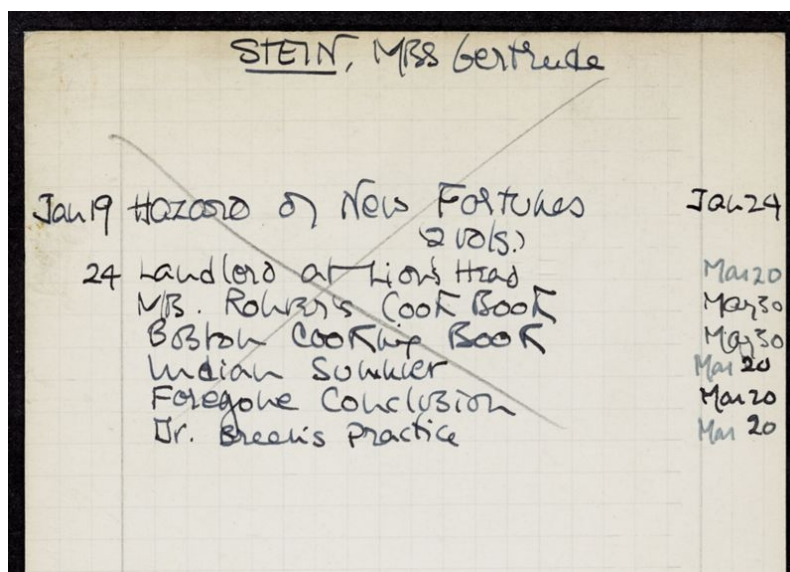 STEIN, Miss Gertrude
Jan 19 Hazard of New Fortunes Jan 24
(2 vols.)
24 Landlord at Lion's Head Mar 20
Mrs. Rohrer's Cook Book May 30
Boston Cooking Book May 30
Indian Summer Mar 20
Foregone Conclusion Mar 20
Dr. Breen's Practice Mar 20